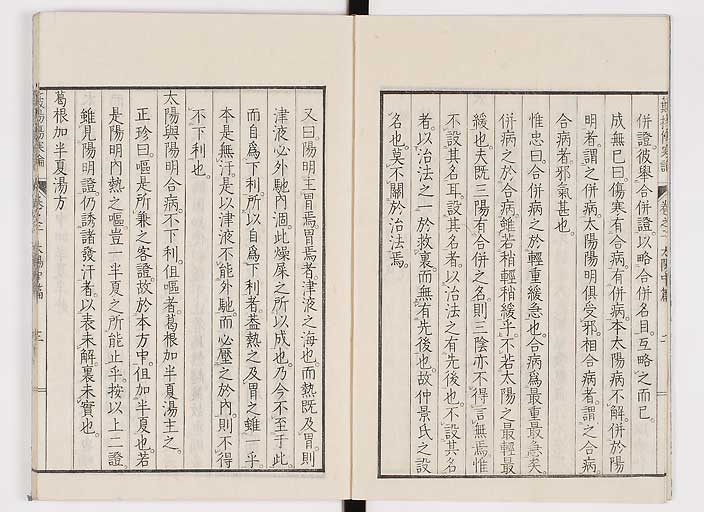 併證。彼舉合併證。以略合併名目。互略之而已。
成無已曰。傷寒有合病。有併病。本太陽病不解。併於陽
明者。謂之併病。太陽陽明俱受邪。相合病者。謂之合病。
合病者。邪氣甚也。
惟忠曰。合併病之於輕重緩急也。合病爲最重最急矣。
併病之於合病。雖若稍輕稍緩乎。不若太陽之最輕最
緩也。夫既三陽有合併之名。則三陰亦不得言無焉。惟
不設其名耳。設其名者。以治法之有先後也。不設其名
者。以治法之一於救裏。而無有先後也。故仲景氏之設
名也。莫不關於治法焉。
又曰。陽明主胃焉。胃焉者。津液之海也。而熱既及胃。則
津液必外馳內涸。此燥屎之所以成也。乃今不至于此。
而自爲下利。所以自爲下利者。葢熱之及胃之雖一乎。
本是無汗。是以津液不能外馳。而必壓之於內。則不得
不下利也。
太陽與陽明合病。不下利。但嘔者。葛根加半夏湯主之。
正珍曰。嘔是所兼之客證。故於本方中。但加半夏也。若
是陽明內熱之嘔。豈一半夏之所能止乎。按以上二證。
雖見陽明證。仍誘諸發汗者。以表未解。裏未實也。
葛根加半夏湯方